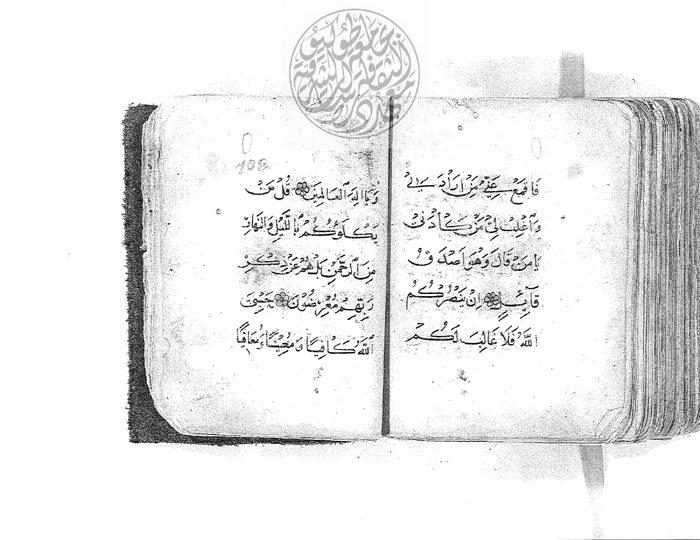 فَاقْمَعْ عَنِّي مَنْ اَرَادَنِي
وَاغْلِبْ لِي مَنْ كَادَنِي
يَا مَنْ قَالَ وَهُوَ اَصْدَقُ
قَآئِلٍ اِنْ يَنْصُرْكُمُ
اللّٰهُ فَلَا غَالِبَ لَكُمْ
وَيَا اِلٰهَ الْعَالَمِينَ قُلْ مَنْ
يَكْلَؤُكُمْ بِالَّليْلِ وَالنَّهَارِ
مِنَ الرَّحْمٰنِ بَلْ هُمْ عَنْ ذِكْرِ
رَبِّهِمْ مُعْرِضُونَ حَسْبِيَ
اللّٰهُ كَافِيًا وَمُعِينًا وَمُعَافِيًا